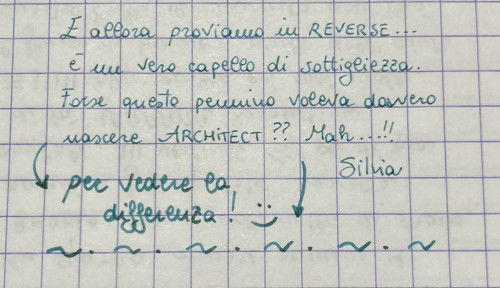 E allora proviamo in REVERSE...
è un vero capello di sottigliezza.
Forse questo pennino voleva davvero
nascere ARCHITECT?? Mah...!!
Silvia
per vedere la
differenza! :)
~ . ~ . ~ . ~ . ~ . ~